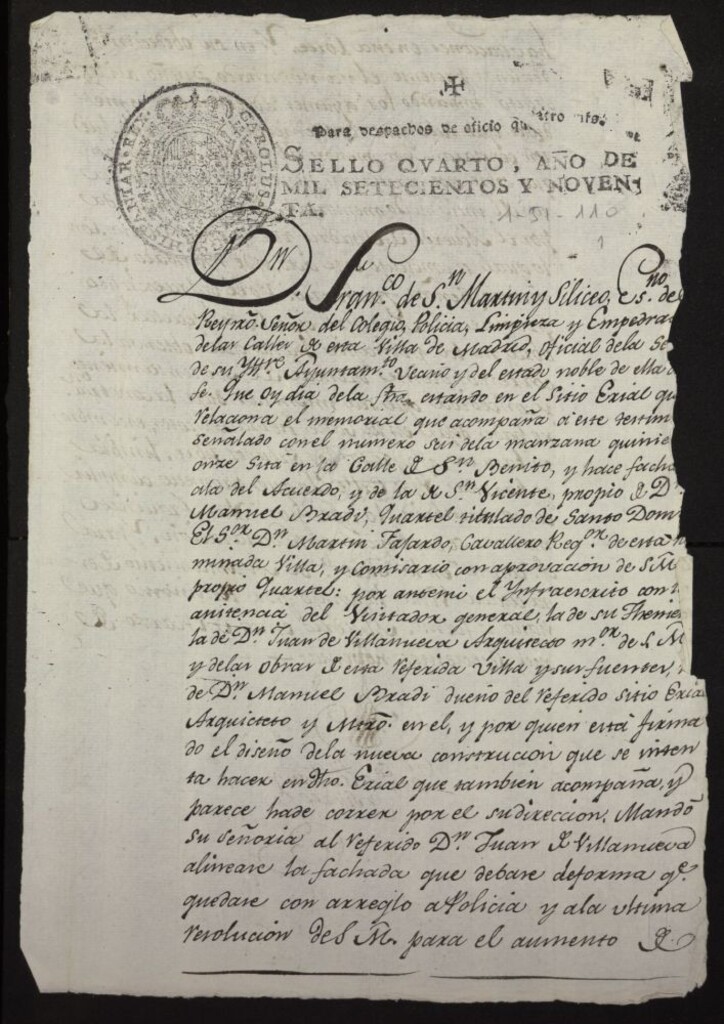 HISPANIAR·REX· CAROLUS·
Para despachos de oficio qu tro mrs.
SELLO QVARTO, AÑO DE
MIL SETECIENTOS Y NOVEN-
TA.
Dn. Franco. de Sn. Martin y Siliceo, Esno. de
Reyno. Señor del Colegio, Policia, Limpieza y Empedra
delas Calles de esta Villa de Madrid, oficial dela Se
de su Yttre. Ayuntamto. Vecino y del estado noble de Ma
fe. Que oy dia dela fha. estando en el Sitio Erial qu
relaciona el memorial que acompaña a este testim
señalado con el numero seis dela manzana quinie
onze sita en la Calle de Sn. Benito, y hace facha
ala del Acuerdo, y de la de Sn. Vicente, propio de Dn.
Manuel Bradi, Quartel titulado de Santo Dom
El Sor. Dn. Martin Fajardo, Cavallero Regor. de esta n
minada Villa, y Comisario con aprovacion de S.M.
propio Quartel: por antemi el Infraescrito con
asistencia del Visitador general, la de su Theni
la de Dn. Juan de Villanueva Arquitecto mor. de S.M
y delas obras de esta referida Villa y sus fuentes,
de Dn. Manuel Bradi dueño del referido sitio Eria
Arquicteto y Mtro. en el, y por quien esta firma
do el diseño dela nueva construccion que se inten
ta hacer en dho. Erial que tambien acompaña, y
parece hade correr por el su direccion. Mandó
su señoria al referido Dn. Juan de Villanueva
alinease la fachada que debase deforma qe.
quedase con arreglo a Policia y ala ultima
resolucion de S.M. para el aumento de